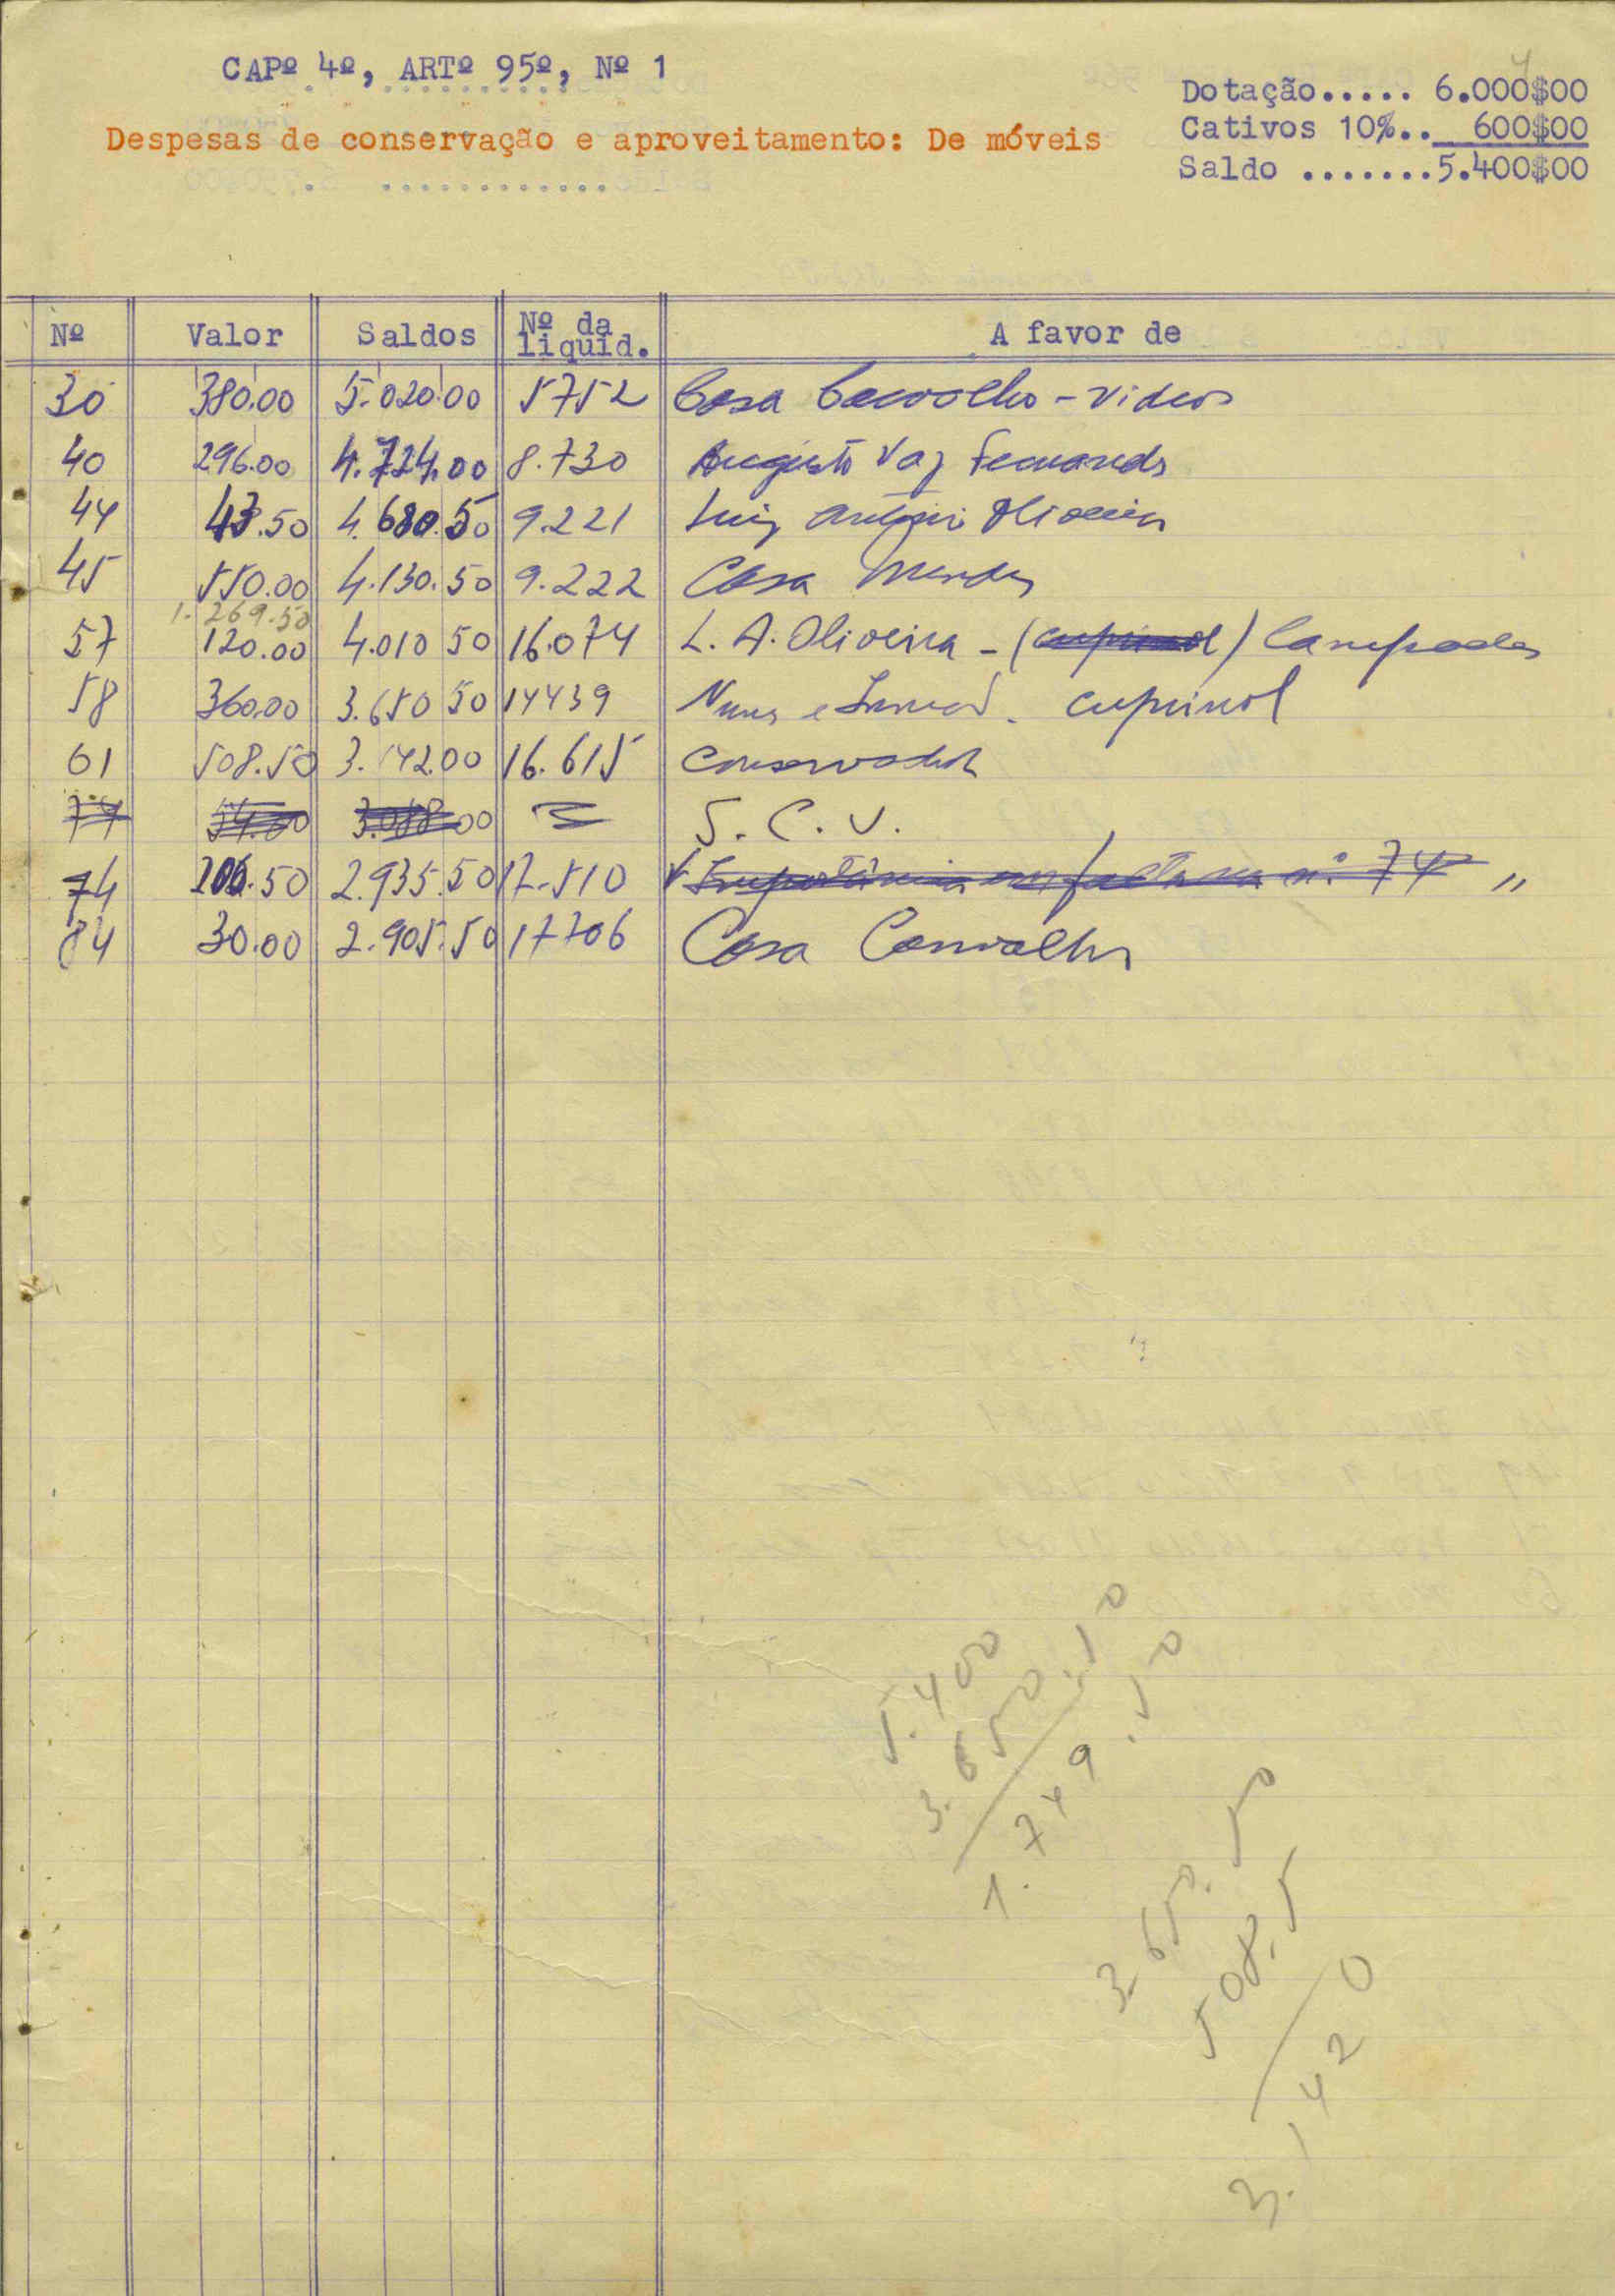 CAPº 4º, ARTº 95º, Nº 1
Dotação..... 6.000$00
Cativos 10%.. 600$00
Saldo .......5.400$00
Despesas de conservação e aproveitamento: De móveis
Nº Valor Saldos Nº da liquid. A favor de
30 380.00 5.020.00 5752 Casa Carvalho - vidros
40 296.00 4.724.00 8.730 Augusto Vaz Fernandes
44 43.50 4.680.50 9.221 Luiz António Oliveira
45 550.00 4.130.50 9.222 Casa Mendes
1.269.50
57 120.00 4.010 50 16.074 L. A. Oliveira - (cuprinol) Lampadas
58 360.00 3.650 50 14439 Nunes e cuprinol
61 508.50 3.142.00 16.615 Conservador
77 54.00 3.088.00 S. C. V.
74 206.50 2.935.50 17.510 Importância factura nº 74 "
84 30.00 2.905.50 17706 Casa Carvalho
5.400
3.650.50
1.749.50
3650.50
508.5
3.1420